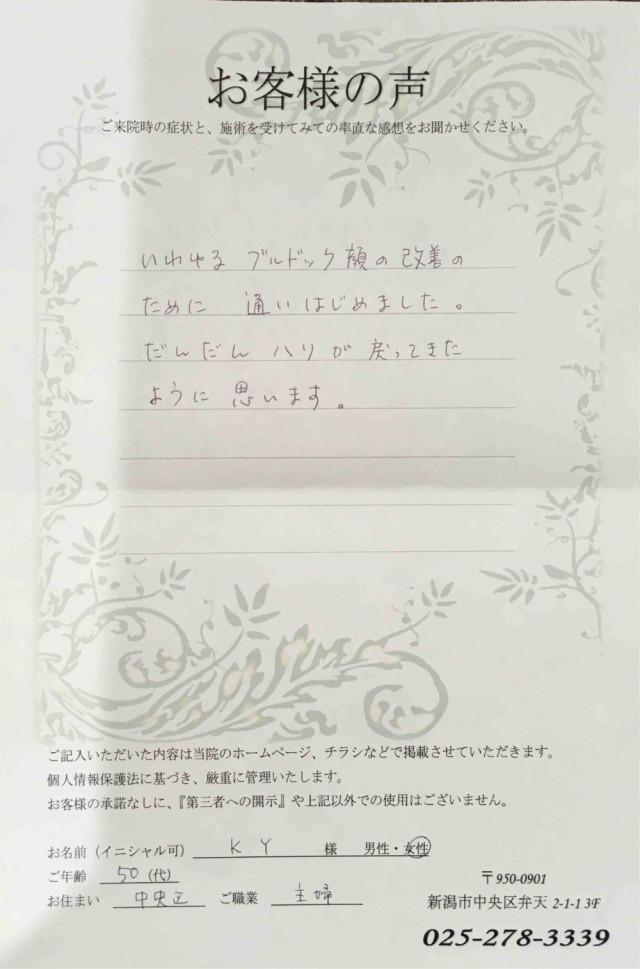 お客様の声
ご来院時の症状と、施術を受けてみての率直な感想をお聞かせください。
いわゆる ブルドック顔の改善の
ために 通いはじめました。
だんだん ハリが 戻ってきた
ように 思います。
ご記入いただいた内容は当院のホームページ、チラシなどで掲載させていただきます。
個人情報保護法に基づき、厳重に管理いたします。
お客様の承諾なしに、『第三者への開示』や上記以外での使用はございません。
お名前（イニシャル可） K.Y 様 男性・女性
ご年齢 50（代）
お住まい 中央区 ご職業 主婦
〒950-0901
新潟市中央区弁天 2-1-1 3F
025-278-3339